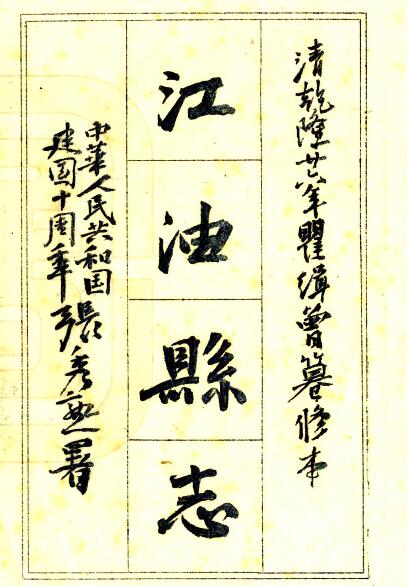 清乾隆廿六年瞿緝曾纂修本
江油縣志
中華人民共和国
建国十周年張秀熟署